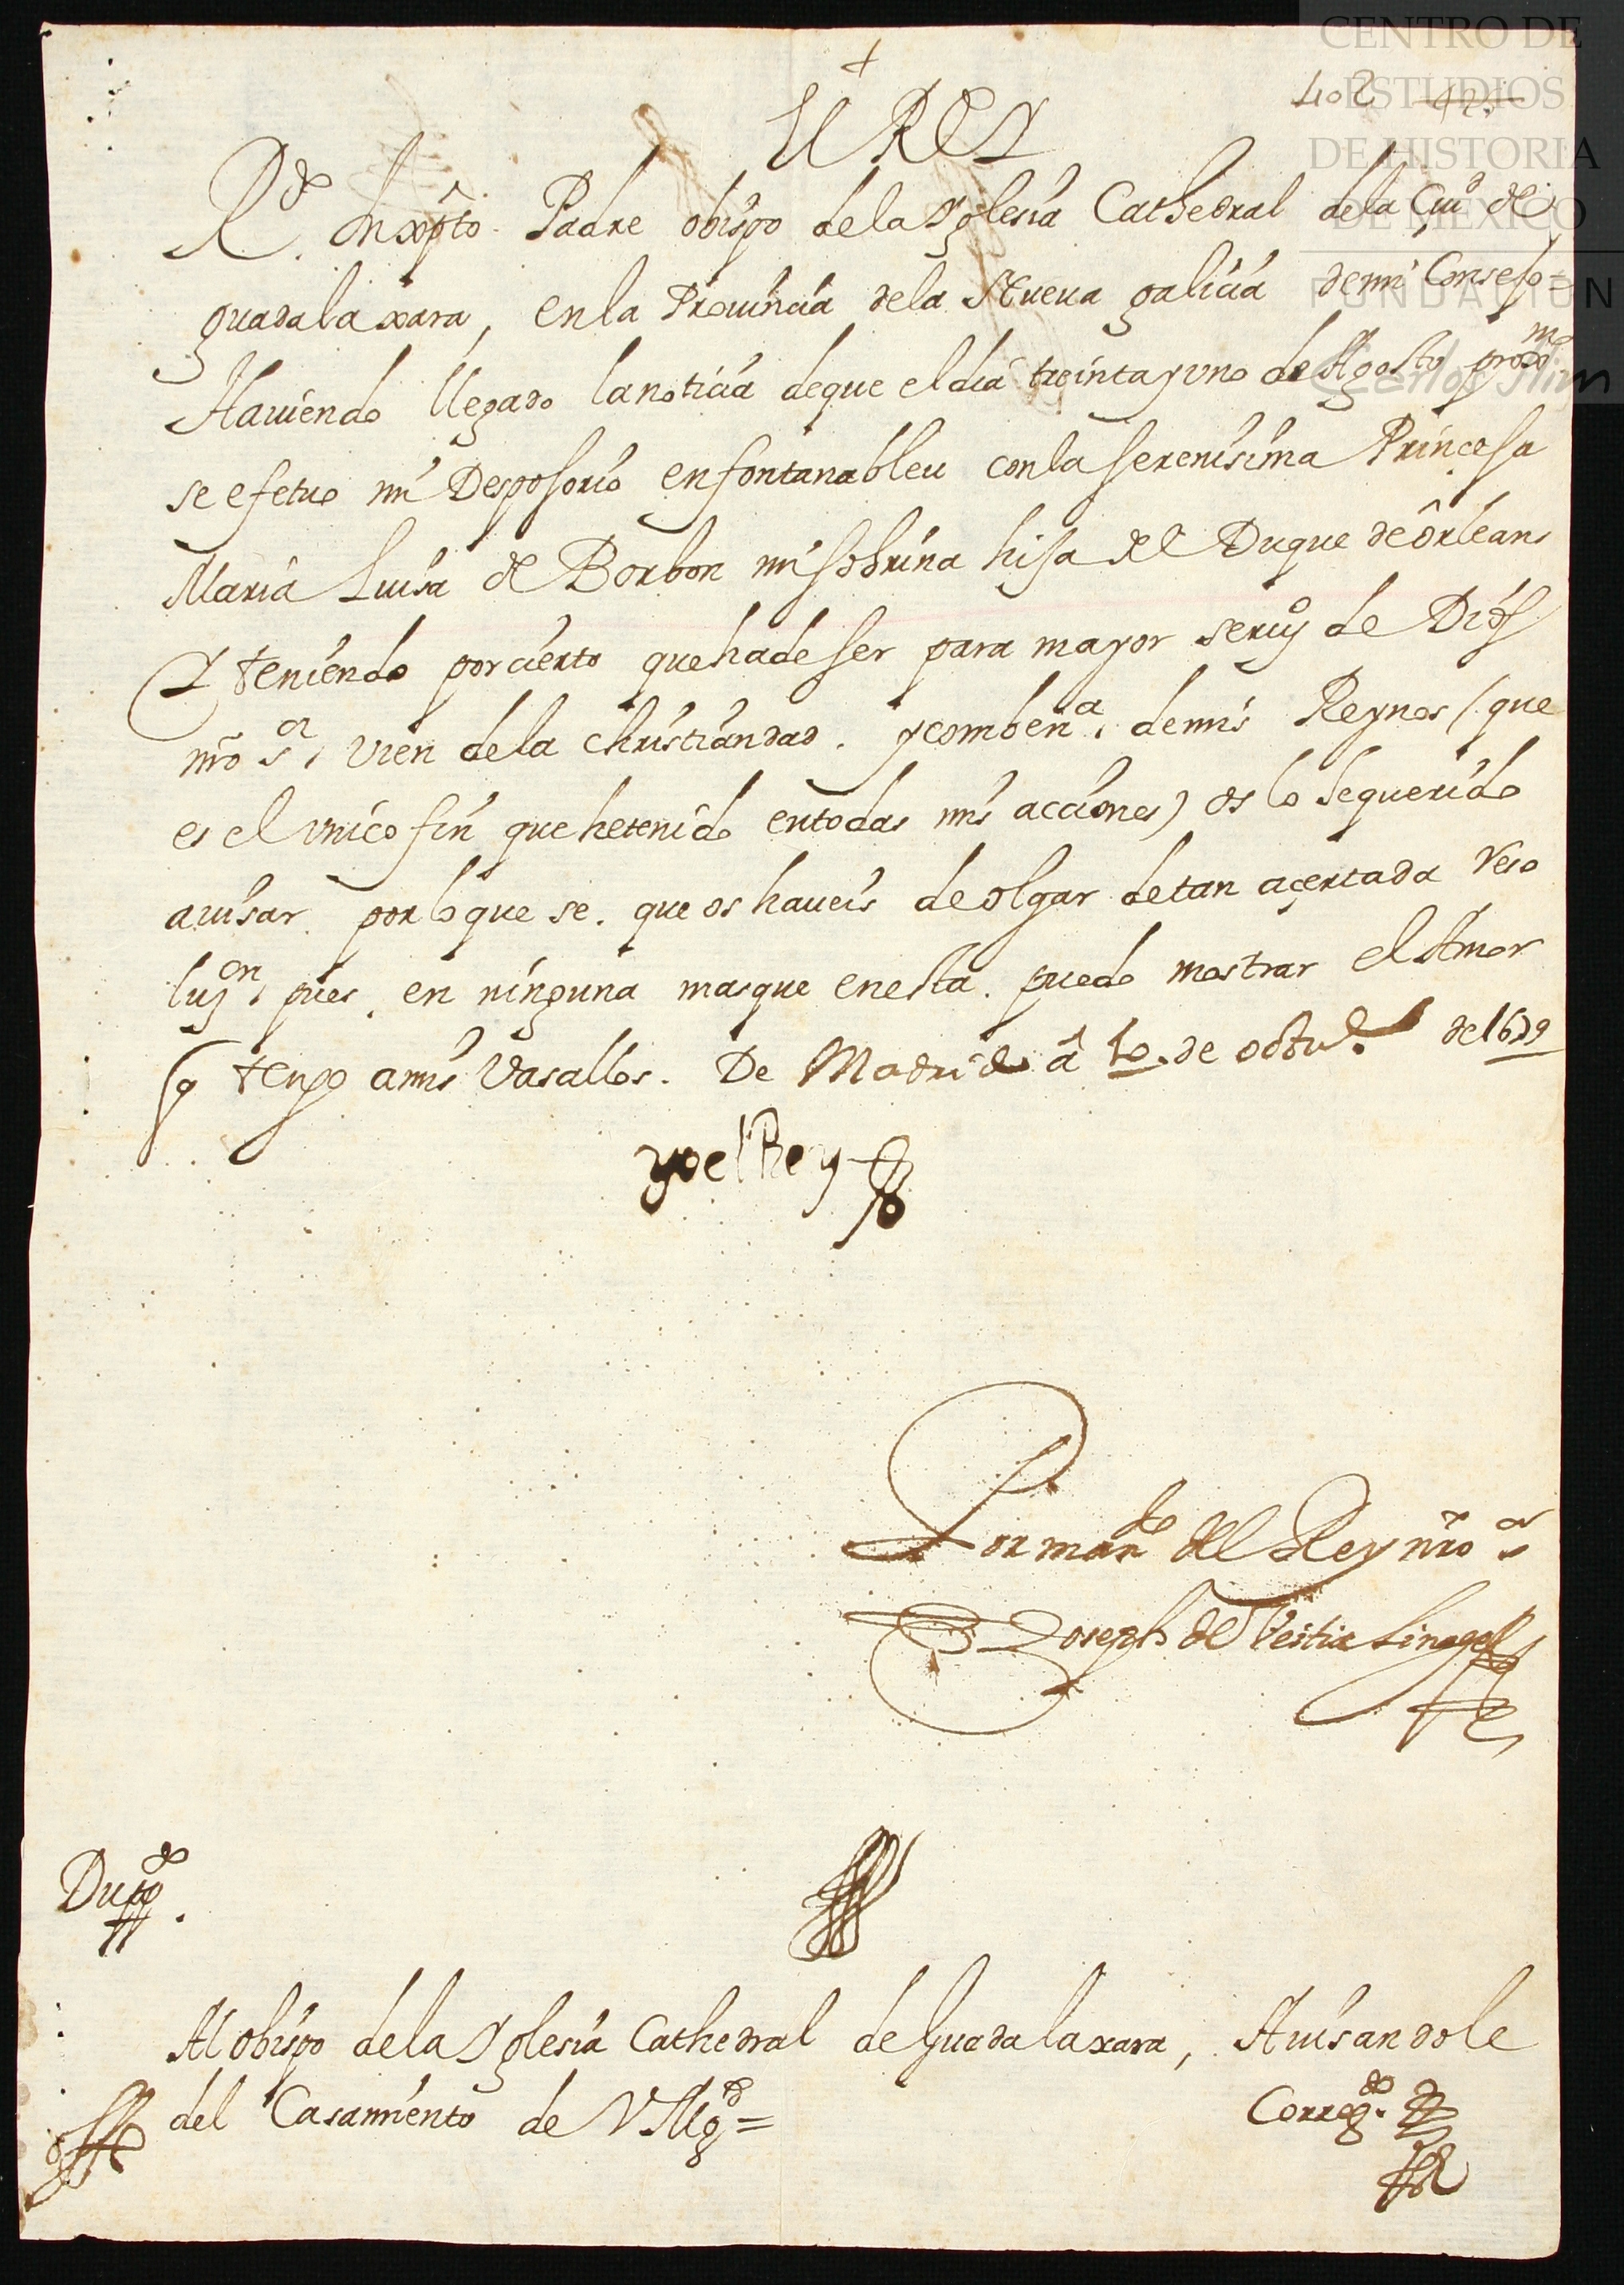 CENTRO DE
ESTUDIOS
DE HISTORIA
DE MÉXICO
FUNDACIÓN
Carlos Slim
402
El Rey
Rdo. Inxpto. Padre obispo de la Yglesia Cathedral de la Ciud de
guadalaxara, en la Prouincia de la Nueua galicia de mi Consejo =
Hauiendo llegado la noticia de que el dia treinta y uno de Agosto proxmo
se efetuo mi Desposorio en fontanableu con la serenisima Princesa
Maria Luisa de Borbon mi sobrina hija del Duque de Orleans
Y teniendo por cierto que ha de ser para mayor seruiº de Dios
nro sr, vien de la christiandad. y combena. de mis Reynos (que
es el vnico fin que he tenido en todas mis acciones) os lo he querido
auisar. por lo que se. que os haueis de olgar de tan açertada reso
luzon, pues, en ninguna mas que en esta. puedo mostrar el Amor
q tengo a mis Vasallos. De Madrid â 10. de octue. de 1679
yo el Rey
Por mando del Rey nro sr
Joseph de Veitia Linage
Dupdo.
Al obispo de la Yglesia Cathedral de Guadalaxara, Auisandole
del Casamiento de V Mgd =
Corregdo.